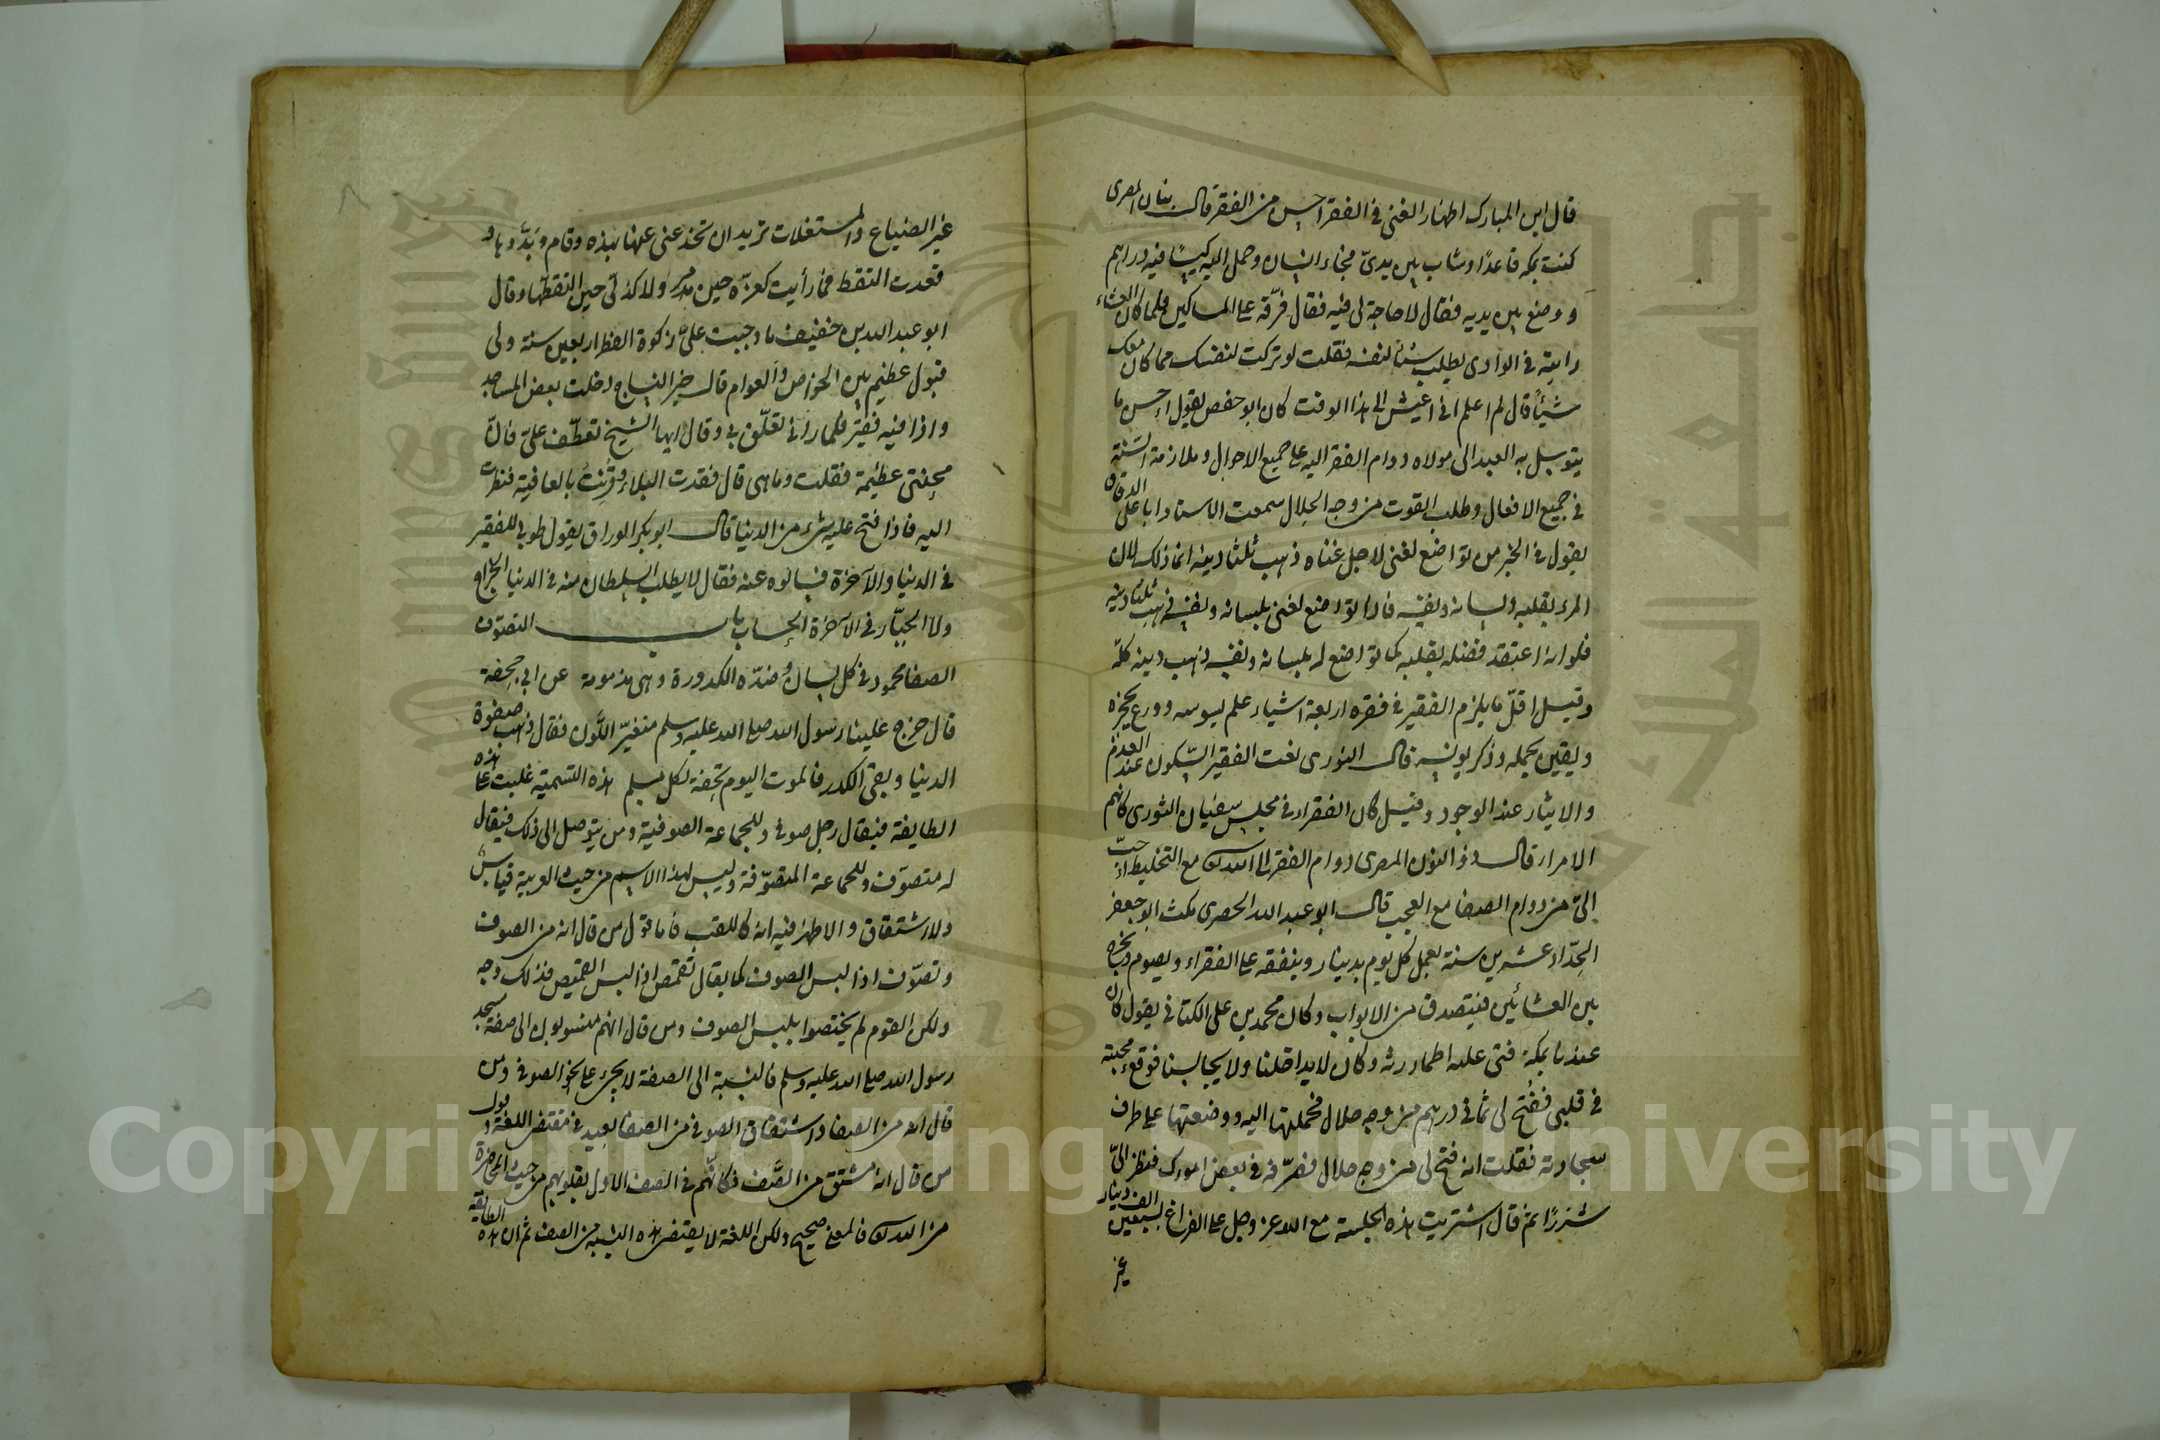 قال ابن المبارك اظهار الغنى في الفقر احسن من الفقر قال بنان المصري
كنت بمكة قاعدًا وشاب بين يديّ فجاء انسان وحمل اليه كيسًا فيه دراهم
ووضع بين يديه فقال لا حاجة لي فيه فقال فرّقه على المساكين فلما كان العشاء
رايته في الوادي يطلب شيئًا لنفسه فقلت لو تركت لنفسك مما كان معك
شيئًا قال لم اعلم اني اعيش الى هذا الوقت كان ابو حفص يقول احسن ما
يتوسل به العبد الى مولاه دوام الفقر اليه على جميع الاحوال وملازمة السنة
في جميع الافعال وطلب القوت من وجه الحلال سمعت الاستاد ابا على الدقاق
يقول في الخبر من تواضع لغنى لاجل غناه ذهب ثلثا دينه انما ذلك لان
المرء بقلبه ولسانه ونفسه فاذا تواضع لغنى بلسانه ونفسه ذهب ثلثا دينه
فلو انه اعتقد فضله بقلبه كما تواضع له بلسانه ونفسه ذهب دينه كلّه
وقيل اقلّ ما يلزم الفقير في فقره اربعة اشياء علم يسوسه وورع يحجزه
ويقين يحمله وذكر يونسه قال النوري نعت الفقير السّكون عند العدم
والايثار عند الوجود وقيل كان الفقراء في مجلس سفيان الثوري كانهم
الامراء قال ذو النون المصري دوام الفقر الى الله تعالى مع التخليط احبّ
اليّ من دوام الصفا مع العجب قال ابو عبد الله الحصري مكث ابو جعفر
الحدّاد عشرين سنة يعمل كل يوم بدينار وينفقه على الفقراء ويصوم ويخرج
بين العشائين فيتصدق من الابواب وكان محمد بن على الكتاني يقول كان
عندنا بمكة فتى عليه اطمار رثه وكان لا يداخلنا ولا يجالسنا فوقع محبته
في قلبي ففُتح لي ثماني درهم من وجه حلال فحملتها اليه ووضعتها على طرف
سجادته فقلت انه فتح لي من وجه حلال فصرّفه في بعض امورك فنظر اليّ
شزرًا ثم قال اشتريت هذه الجلسة مع الله عز وجل على الفراغ بسبعين الف دينار
غير
غير الضياع والمستغلات تريد ان تخدعني عنها بهذه وقام وبَدَّدها و
قعدت التقط فما رأيت كعزّه حين مرّ ولا كذلّي حين التقطها وقال
ابو عبد الله بن خفيف ما وجبت علىّ زكوة الفطر اربعين سنة ولي
قبول عظيم بين الخواص والعوام قال خير النساج دخلت بعض المساجد
واذا فيه فقير فلما رآني تعلّق بي وقال ايها الشيخ تعطّف علىّ فانّ
محنتي عظيمة فقلت وما هي قال فقدت البلاء وقُرنتُ بالعافية فنظرت
اليه فاذا فتح عليه شيء من الدنيا قال ابو بكر الوراق يقول طوبى للفقير
في الدنيا والآخرة فسالوه عنه فقال لا يطلب السلطان منه في الدنيا الخراج
ولا الجبّار في الآخرة الحساب باب التصوّف
الصفا محمود في كل لسان وضدّه الكدورة وهي مذمومة عن ابي جحيفة
قال خرج علينا رسول الله صلى الله عليه وسلم متغيّر اللّون فقال ذهب صفوة
الدنيا وبقى الكدر فالموت اليوم تحفة لكل مسلم هذه التسمية غلبت على هذه
الطايفة فيقال رجل صوفي وللجماعة الصوفية ومن يتوصل الى ذلك فيقال
له متصوّف وللجماعة المتصوّفة وليس لهذا الاسم من حيث العربية قياس
ولا اشتقاق والاظهر فيه انه كاللقب فاما قول من قال انه من الصوف
وتصوّف اذا لبس الصوف كما يقال تقمّص اذا لبس القميص فذلك وجه
ولكن القوم لم يختصوا بلبس الصوف ومن قال انهم منسوبون الى صفة مسجد
رسول الله صلى الله عليه وسلم فالنسبة الى الصفة لا يجيء على نحو الصوفي ومن
قال انه من الصفا واشتقاق الصوفي من الصفا بعيد في مقتضى اللغة وقول
من قال انه مشتق من الصّف فكانّهم في الصف الاول بقلوبهم من حيث المحاضرة
من الله تعالى فالمعنى صحيح ولكن اللغة لا يقتضي هذه النسبة من الصف ثم ان هذه الطايفة
Copyright © King Saud University